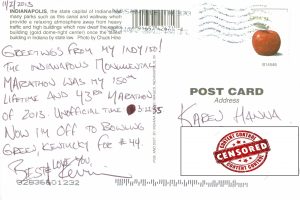 11/2/2013
INDIANAPOLIS, the state capital of Indiana
many parks such as this canal and walkway which
provide a relaxing atmosphere away from heavy
traffic and high buildings which
building (gold dome-right center) once the tallest
building in Indiana by state law. Photo by Chuck Hike
GREETINGS FROM MY INDY 150!
THE INDIANAPOLIS MONUMENTAL
MARATHON WAS MY 150TH
LIFETIME AND 43RD MARATHON
OF 2013. UNOFFICIAL TIME
NOW I'M OFF TO BOWLING
GREEN, KENTUCKY FOR #44.
BEST & LOVE YOU,
Kevin
92836601232
POST CARD
Address
KAREN HANNA
CONTENT CONTROL
CENSORED
CONTENT CONTROL